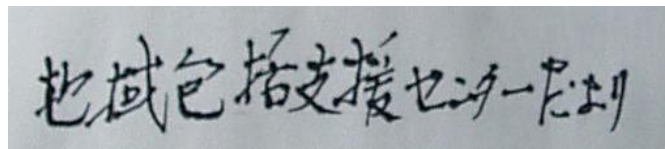 地域包括支援センターだより